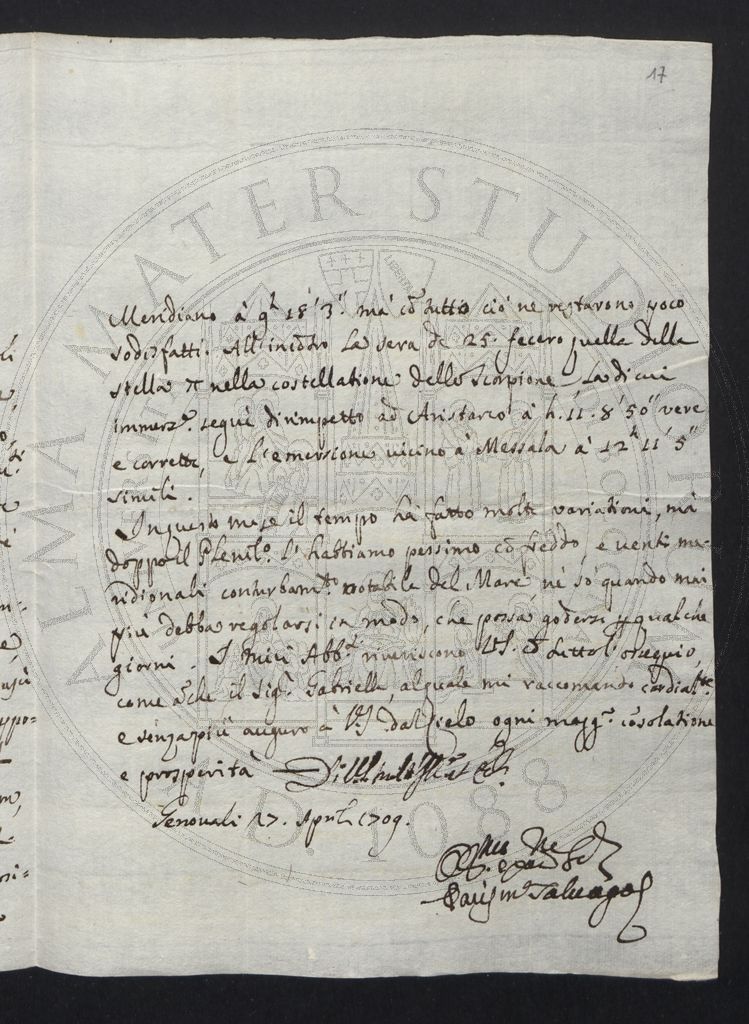 17
Meridiano à 9h 18' 3". mà cō tutto ciò ne restarono poco
sodisfatti. All'incōtro la sera de 25. fecero quella della
stella π nella costellatione dello Scorpione, la di cui
immers.e seguì dirimpetto ad Aristarco à h. 11. 8' 50" vere
e corrette, e l'emersione vicino à Messala à 12h 11' 5"
simili.
In questo mese il tempo hà fatto molte variationi, mà
doppo il Plenil.o l'habbiamo pessimo cō freddo, e venti me-
ridionali conturbam.to notabile del Mare, nè sò quando mai
più debba regolarsi in modo, che possa godersi p qualche
giorni. I miei Abb.ti riveriscono V.S. cō tutto l'ossequio,
come anche il Sig.r Gabrielli, al quale mi raccomando cordial.te
e senza più auguro à V.S. dal Cielo ogni magg.r cōsolatione
e prosperità
Genova li 27. Aprile 1709.
Paris M.a Salvago
ALMA MATER STUDIORUM
A.D. 1088